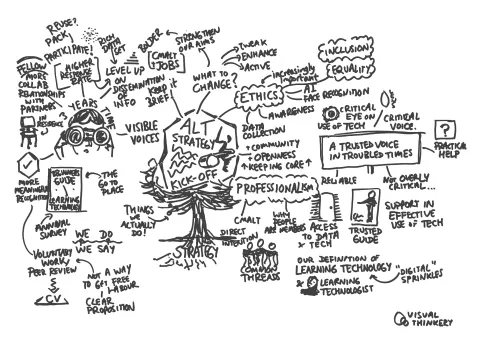 R.PUSE?
PACK
PARTICIPATE!
RICH
DATA
SET
HIGHER
RESPONSE
RATE
FELLOW
MORE
COLLAB
RELATIONSHIPS
WITH
PARTNERS
IN RESIDENCE
YEARS
LEVEL UP
ON
DISSEMINATION
OF
INFO
BOLDER
CMALT
JOBS
STRENGTHEN
OUR AIMS
KEEP it
BRIEF
WHAT TO
CHANGE?
TWEAK
ENHANCE
ACTIVE
VISIBLE
VOICES
ALT
STRATEGY
KICK-OFF
STRATEGY
increasingly
important
ETHICS
INCLUSION
EQUALITY
AI
FACE RECOGNITION
AWARENESS
DATA
COLLECTION
+ COMMUNITY
+ OPENNESS
+ KEEPING CORE
PROFESSIONALISM
CRITICAL
EYE ON
USE OF TECH
CRITICAL
VOICE.
A TRUSTED VOICE
IN TROUBLED TIMES
?
PRACTICAL
HELP
RELIABLE
NOT OVERLY
CRITICAL...
TRUSTED
GUIDE
SUPPORT IN
EFFECTIVE
USE OF TECH
MORE
MEANINGFUL
RECOGNITION
BEGINNERS
GUIDE
to
LEARNING
TECHNOLOGY
THE
GO TO
PLACE
ANNUAL
SURVEY
VOLUNTARY
WORK,
PEER REVIEW
CV
WE DO
WE SAY
NOT A WAY
TO GET FREE
LABOUR
CLEAR
PROPOSITION
THINGS
WE
ACTUALLY
DO!
CMALT
DIRECT
INTENTION
WHY
PEOPLE
ARE MEMBERS
ACCESS
TO DATA
& TECH
COMMON
THREADS
OUR DEFINITION OF
LEARNING TECHNOLOGY
& LEARNING
TECHNOLOGIST
"DIGITAL"
SPRINKLES
VISUAL
THINKERY